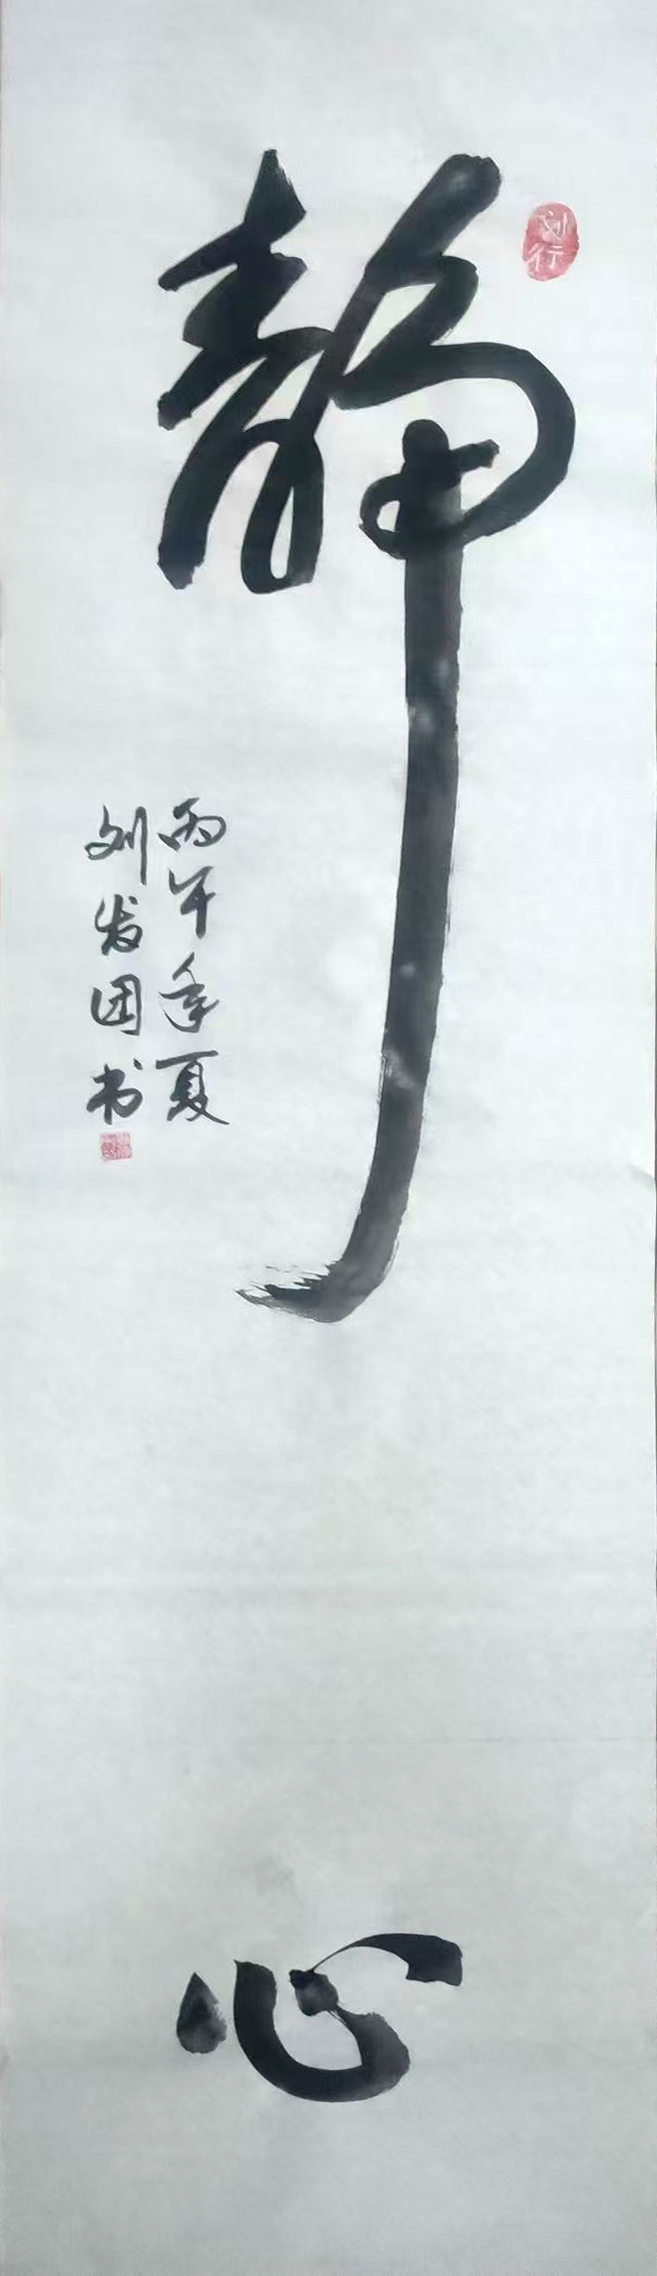 静心
丙午年夏
刘发团书